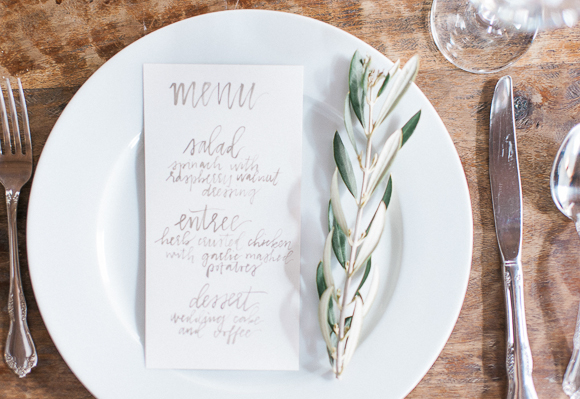 menu
salad
spinach with
raspberry walnut
dressing
entree
herb crusted chicken
with garlic mashed
potatoes
dessert
wedding cake
and coffee